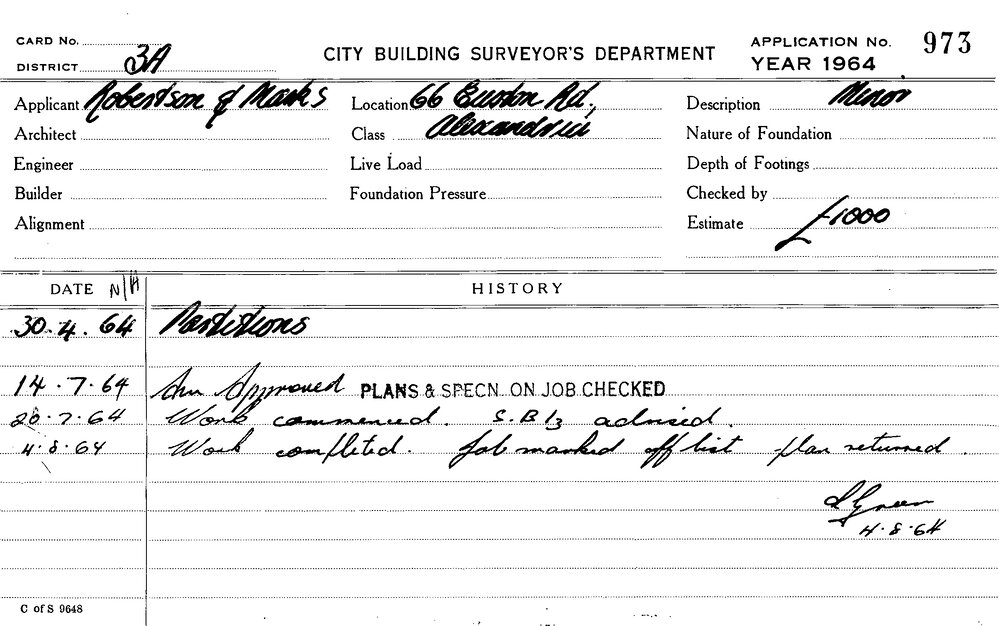 CARD No.
DISTRICT 3A
CITY BUILDING SURVEYOR'S DEPARTMENT
APPLICATION No. 973
YEAR 1964
Applicant Robertson & Marks
Location 66 Euston Rd.,
Description Minor
Architect
Class Alexandria
Nature of Foundation
Engineer
Live Load
Depth of Footings
Builder
Foundation Pressure
Checked by
Alignment
Estimate £1000
DATE N/A
HISTORY
30.4.64 Partitions
14.7.64 Approved PLANS & SPECN. ON JOB CHECKED
20.7.64 Work commenced. S.B 1/3 advised.
4.8.64 Work completed. Job marked off list plan returned.
Green
4.8.64
C of S 9648